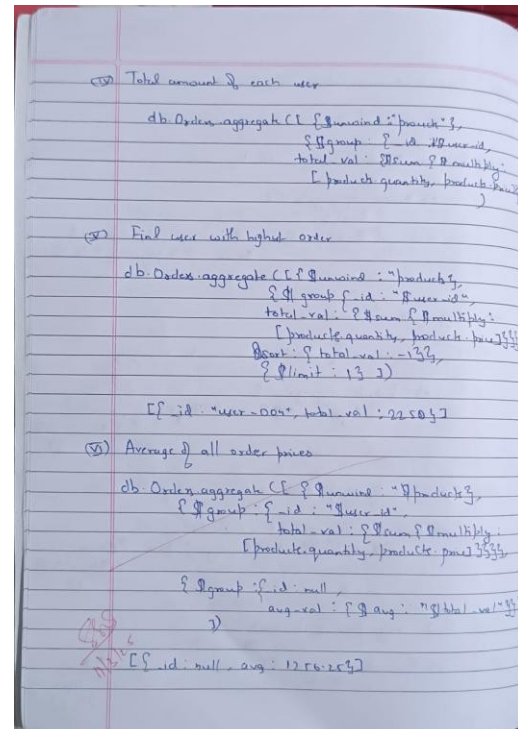 (IV) Total amount of each user
db.Orders.aggregate([ {$unwind: "product"},
{$group: {_id: "$user_id,
total_val: {$sum {$multiply:
[product.quantity, product.price]
)
(V) Find user with highest order
db.Orders.aggregate([{$unwind: "products},
{$group {_id: "$user_id",
total_val: {$sum {$multiply:
[products.quantity, product.price]}}}
$sort: {total_val: -1}},
{$limit: 1} ])
[{_id: "user-004", total_val: 2250}]
(VI) Average of all order prices
db.Orders.aggregate([ {$unwind: "$products},
{$group: {_id: "$user_id",
total_val: {$sum {$multiply:
[products.quantity, products.price]}}}},
{$group: {_id: null,
avg_val: {$avg: "$total_val"}}
])
[{_id: null, avg: 1256.25}]